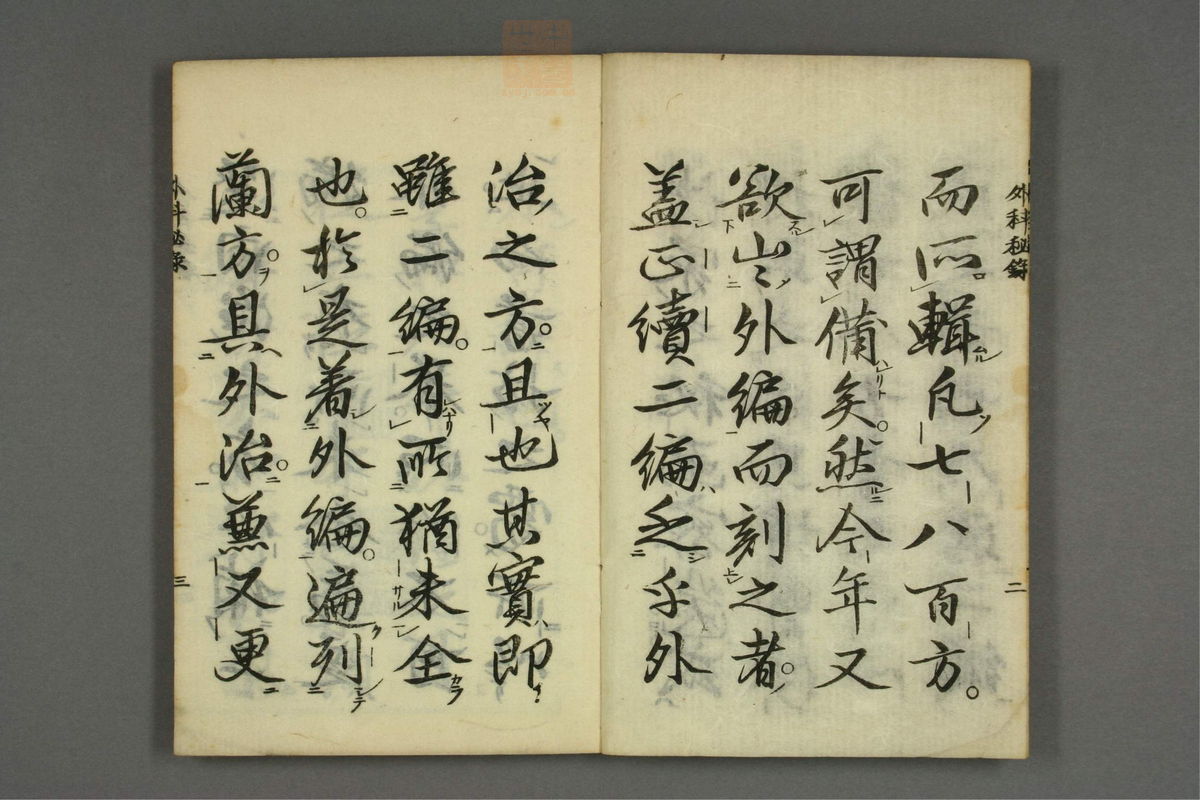 外科秘録
二
而所輯凡七八百方。
可謂備矣。然今年又
欲出外編而刻之者。
蓋正續二編乏乎外
治之方。且也其實即
雖二編。有所猶未全
也。於是著外編。遍列
蘭方。具外治。無又更
外科秘録
三